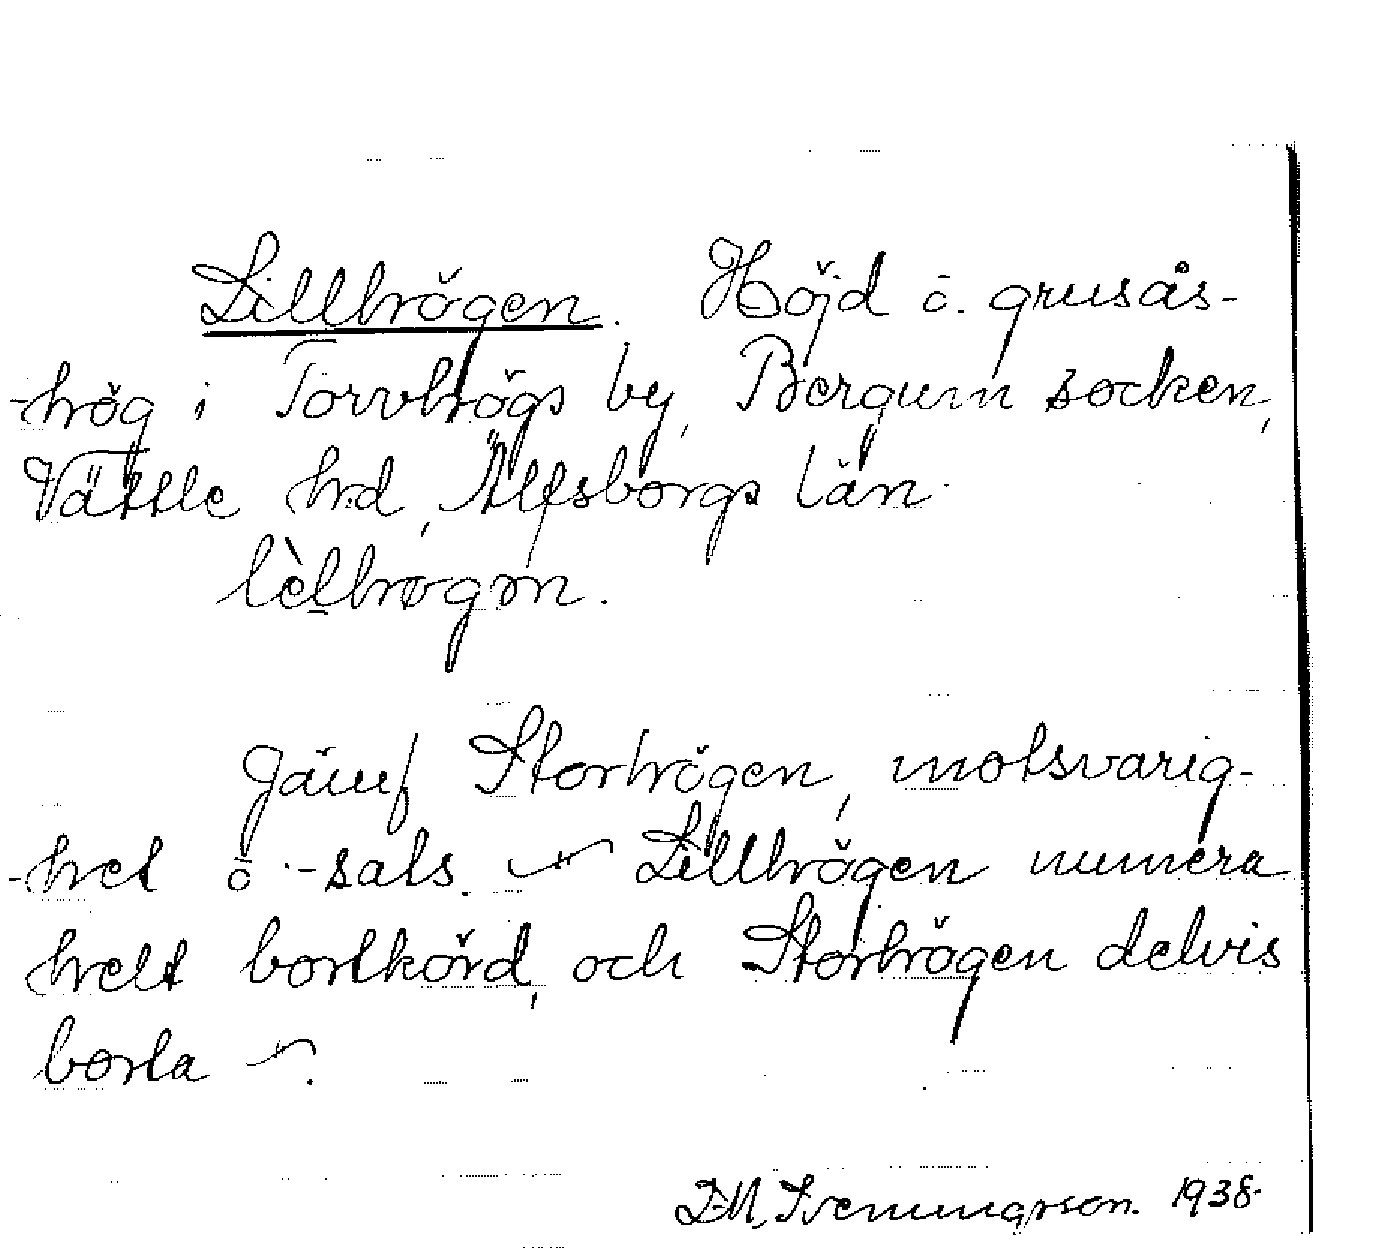 Lillhögen. Höjd ō. grusås-
-hög i Torvhögs by, Bergum socken,
Vättle hrd, Älfsborgs län.
lèlhøgən.
Jämf Storhögen, motsvarig-
-het ō -sats. Lillhögen numera
helt bortkörd, och Storhögen delvis
borta
D.M. Svenungsson. 1938.